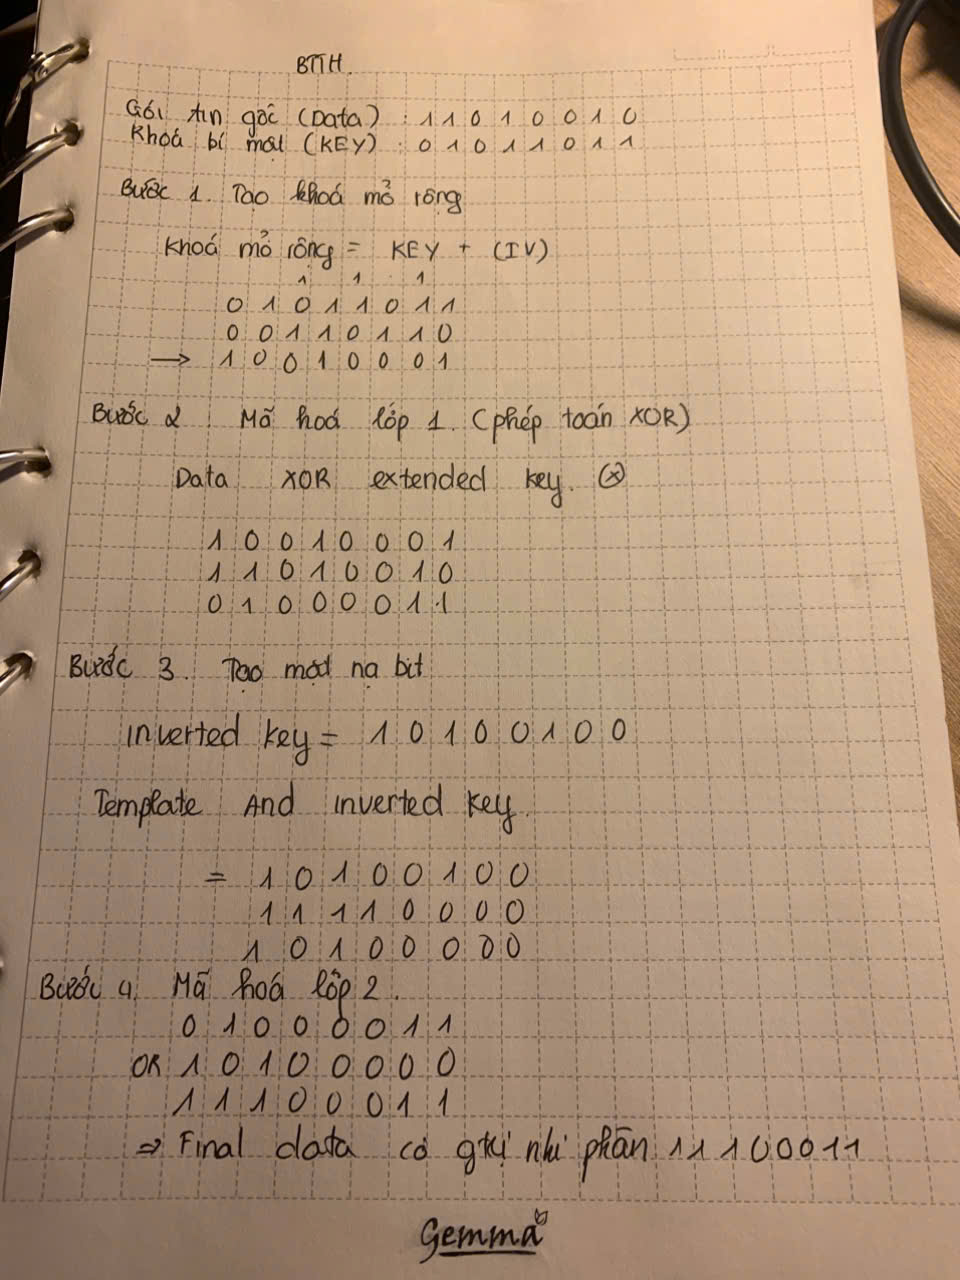 BTTH.
Gói tin gốc (Data) : 1 1 0 1 0 0 1 0
Khoá bí mật (KEY) : 0 1 0 1 1 0 1 1
Bước 1. Tạo khoá mở rộng
Khoá mở rộng = KEY + (IV)
1 1 1
0 1 0 1 1 0 1 1
0 0 1 1 0 1 1 0
→ 1 0 0 1 0 0 0 1
Bước 2 : Mã hoá lớp 1. (phép toán XOR)
Data XOR extended key.
1 0 0 1 0 0 0 1
1 1 0 1 0 0 1 0
0 1 0 0 0 0 1 1
Bước 3. Tạo mặt nạ bit
inverted key = 1 0 1 0 0 1 0 0
Template And inverted key.
= 1 0 1 0 0 1 0 0
1 1 1 1 0 0 0 0
1 0 1 0 0 0 0 0
Bước 4. Mã hoá lớp 2.
0 1 0 0 0 0 1 1
OR 1 0 1 0 0 0 0 0
1 1 1 0 0 0 1 1
⇒ Final data có gtrị nhị phân 1 1 1 0 0 0 1 1
Gemma